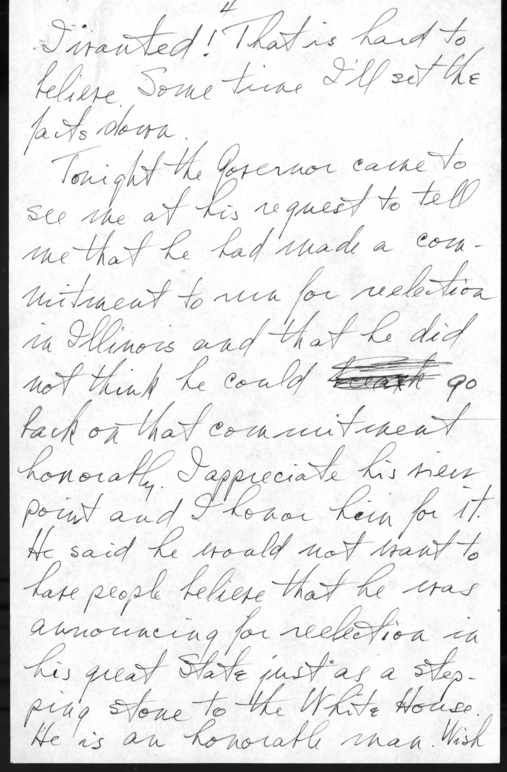 4
I wanted! That is hard to
believe. Some time I'll set the
facts down.
Tonight the Governor came to
see me at his request to tell
me that he had made a com-
mitment to run for reelection
in Illinois and that he did
not think he could go
back on that commitment
honorably. I appreciate his view
point and I honor him for it.
He said he would not want to
have people believe that he was
announcing for reelection in
his great State just as a step-
ping stone to the White House.
He is an honorable man. Wish